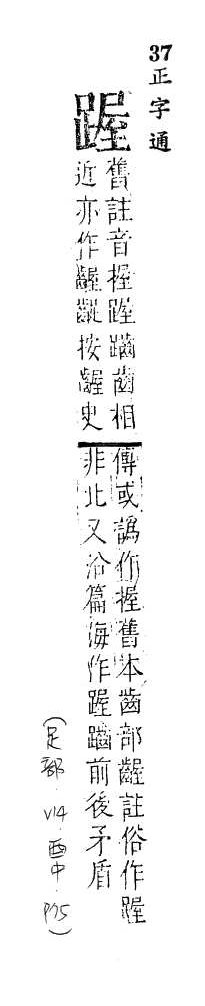 37正字通
舊註音握齒相
近亦作齷齪按齷史
傳或譌作握舊本齒部齷註俗作
非北又沿篇海作前後矛盾
(足部·V14·酉中·P75)